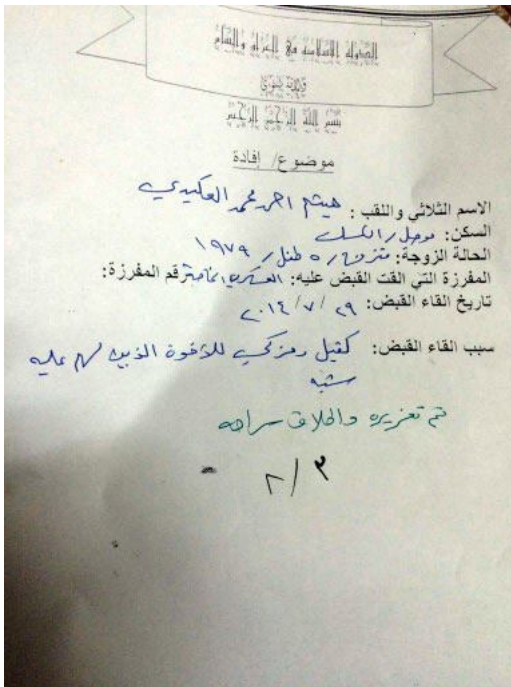 الدولة الاسلامية في العراق والشام
ولاية نينوى
بسم الله الرحمن الرحيم
موضوع / إفادة
الاسم الثلاثي واللقب : هيثم احمد محمد العكيدي
السكن: موصل /
الحالة الزوجة: متزوج / ٥ طفل / ١٩٧٩
المفرزة التي القت القبض عليه: العسكرية رقم المفرزة:
تاريخ القاء القبض: ٢٩ / ٧ / ٢٠١٤
سبب القاء القبض: كفيل للأخوة الذين لهم عليه
شبه
تم تعزيره واطلاق سراحه
٨/٣